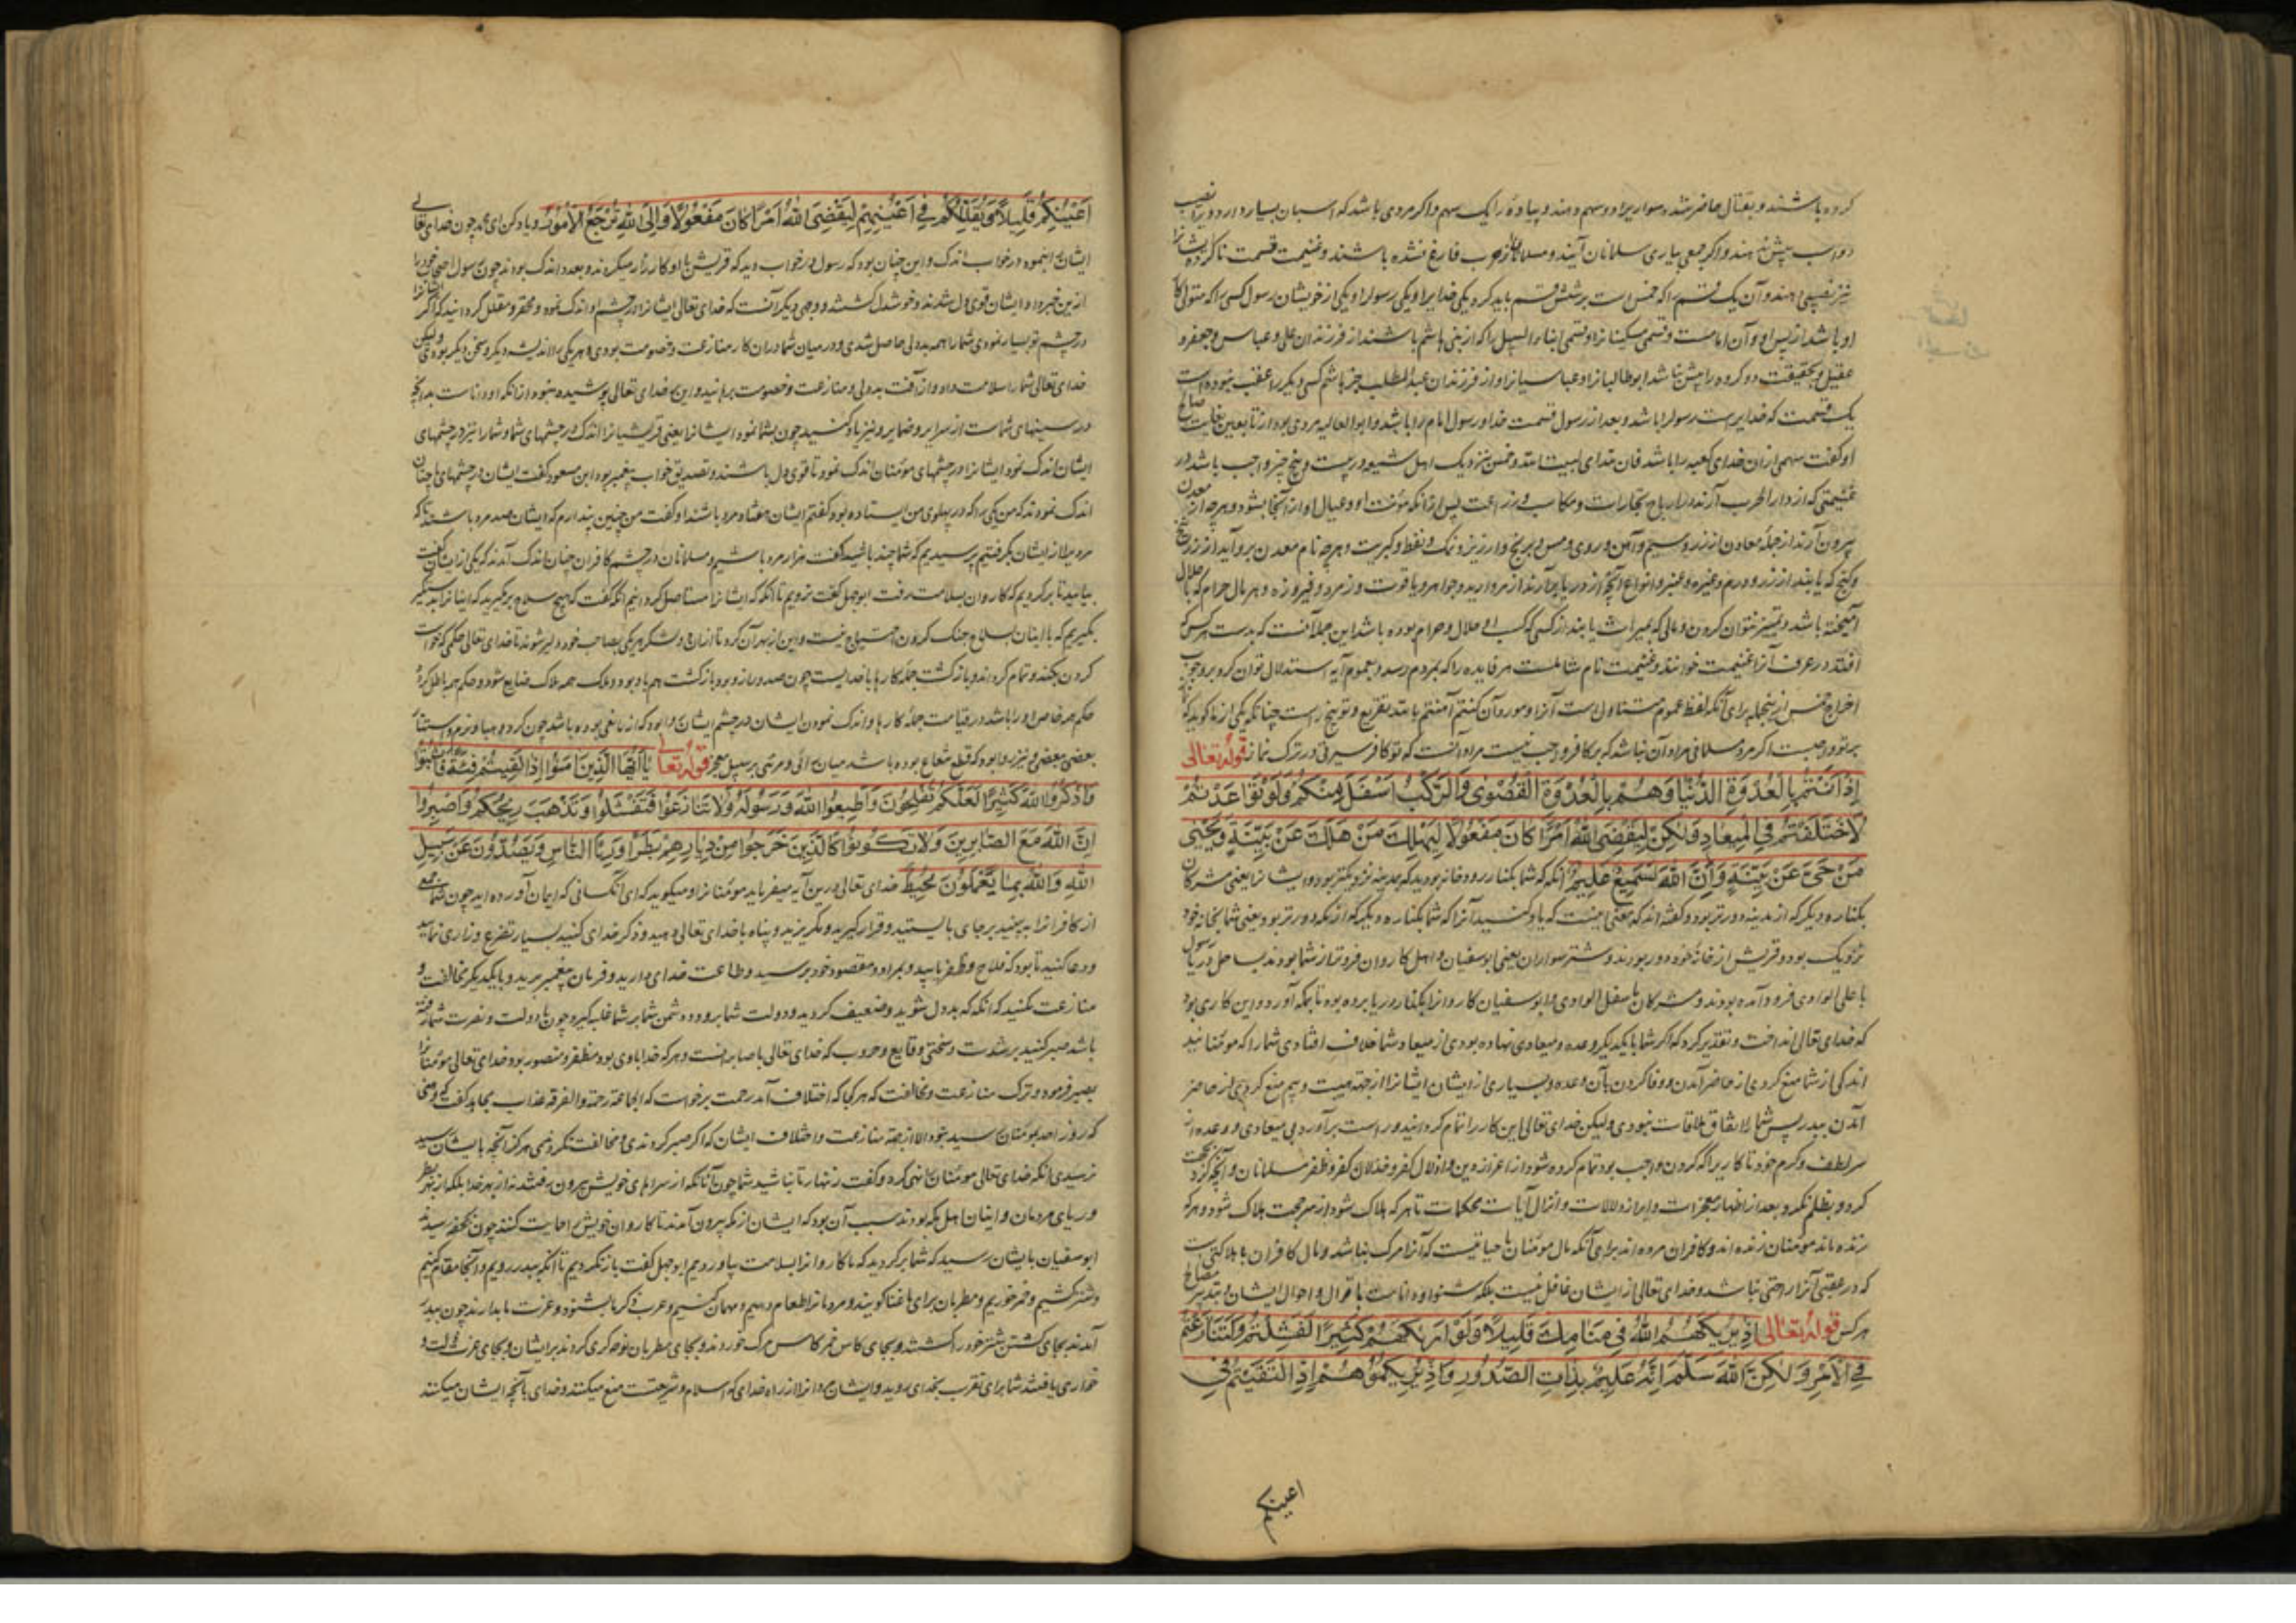 کرده باشند و بقتال حاضر شده سوار را دو سهم دهند و پیاده را یک سهم و اگر مردی باشد که اسبان بسیار دارد دو را نصیب
دواب بیش ندهند و اگر جمعی بیاری مسلمانان آیند و مسلمانان از حرب فارغ نشده باشند و غنیمت قسمت ناکرده ایشانرا
نیز نصیبی دهند و آن یک قسم را که خمس است بر شش قسم باید کرد یکی خدایرا و یکی رسولرا و یکی از خویشان رسول کسی را که متولی کار
او باشد از پس او و آن امامست و قسمی مسکینانرا و قسمی ابناء السبیل را که از بنی هاشم باشند از فرزندان علی و عباس و جعفر و
عقیل و بحقیقت دو کروه را بیش نباشد ابوطالبیانرا و عباسیانرا و از فرزندان عبدالمطلب جز هاشم کسی دیکر را عقب نبوده است
یک قسمت که خدایراست رسولرا باشد و بعد از رسول قسمت خدا و رسول امام را باشد و ابوالعالیه مردی بود از تابعین بغایت صالح
او کفت سهمی از ان خدای کعبه را باشد و خمس نزدیک اهل شیعه در بیست و پنج چیز واجب باشد در
غنیمتی که از دار الحرب آرند و ارباح تجارات و مکاسب و زراعت پس از انکه مؤنت او و عیال او از آنجا بشود و هر چه از معدن
بیرون آرند از جمله معادن از زر و سیم و آهن و روی و مس و برنج و ارزیز و نمک و نفط و کبریت و هر چه نام معدن برو آید از زرنیخ
و کنج که یابند از زر و درم و غیره و عنبر و انواع آنچه از دریا برآرند از مروارید و جواهر و یاقوت و زمرد و فیروزه و هر مال حرام که با حلال
آمیخته باشد و تمییز نتوان کردن و مالی که بمیراث یابند از کسی که کسب او حلال و حرام بوده باشد این جمله آنست که بدست هر کس که
افتد در عرف آنرا غنیمت خوانند و غنیمت نام شاملست هر فایده را که بمردم رسد و بعموم آیه استدلال توان کرد بر وجوب
اخراج خمس از ینجمله برای آنکه لفظ عموم متناول است آنرا و مورد آن کنتم آمنتم بالله تقریع و توبیخ راست چنانکه یکی از ما کوید که نماز
بر تو واجبست اکر مرد مسلمانی مراد آن نباشد که بر کافر واجب نیست مراد آنست که تو کافر سیرتی در ترک نماز قوله تعالی
إِذْ أَنْتُمْ بِالْعُدْوَةِ الدُّنْيَا وَهُمْ بِالْعُدْوَةِ الْقُصْوَى وَالرَّكْبُ أَسْفَلَ مِنْكُمْ وَلَوْ تَوَاعَدْتُمْ
لَاخْتَلَفْتُمْ فِي الْمِيعَادِ وَلَكِنْ لِيَقْضِيَ اللَّهُ أَمْرًا كَانَ مَفْعُولًا لِيَهْلِكَ مَنْ هَلَكَ عَنْ بَيِّنَةٍ وَيَحْيَى
مَنْ حَيَّ عَنْ بَيِّنَةٍ وَإِنَّ اللَّهَ لَسَمِيعٌ عَلِيمٌ آنکه که شما بکنار رودخانه بودید که بمدینه نزدیکتر بود و ایشانرا یعنی مشرکان
بکناره دیکر که از مدینه دورتر بود و کفته اند که معنی اینست که یاد کنید آنرا که شما بکناره دورتر بود و یعنی شما بخانه خود
نزدیک بود و قریش از خانه خود دور بودند و شتر سواران یعنی ابوسفیان و اهل کاروان فروتر از شما بودند بساحل دریا رسول
با علی الوادی فرود آمده بودند و مشرکان باسفل الوادی و ابوسفیان کاروانرا بکنار دریا برده بود تا بمکه آورد و این کاری بود
که خدای تعالی انداخت و تقدیر کرد که اکر شما با یکدیکر وعده و میعادی نهاده بودی از میعاد شما خلاف افتادی شما را که مؤمنانید
اندکی از شما منع کردی از حاضر آمدن و وفا کردن بآن وعده و بسیاری از ایشان ایشانرا از جهت هیبت و بیم منع کردی از حاضر
آمدن ببدر پس شما را اتفاق ملاقات نبودی ولیکن خدای تعالی این کار را تمام کردانید و راست برآورد بی میعادی و وعده از
سر لطف و کرم خود تا کاری را که کردن واجب بود تمام کرده شود از اعزاز دین و اذلال کفر و خذلان کفر و ظفر مسلمانان و آنچه کرد بحجت
کرد و بظلم نکرد بعد از اظهار معجزات و ابراز دلالات و انزال آیات محکمات تا هر که هلاک شود از سر حجت هلاک شود و هر که
زنده ماند مؤمنان زنده اند و کافران مرده اند برای آنکه مال مؤمنان با حیاتیست که آنرا مرک نباشد و مال کافران با هلاکتی است
که در عقبی آنرا راحتی نباشد و خدای تعالی از ایشان غافل نیست بلکه شنوا و داناست باقوال و احوال ایشان و بتدبیر مصالح
هر کس قوله تعالی إِذْ يُرِيكَهُمُ اللَّهُ فِي مَنَامِكَ قَلِيلًا وَلَوْ أَرَاكَهُمْ كَثِيرًا لَفَشِلْتُمْ وَلَتَنَازَعْتُمْ
فِي الْأَمْرِ وَلَكِنَّ اللَّهَ سَلَّمَ إِنَّهُ عَلِيمٌ بِذَاتِ الصُّدُورِ وَإِذْ يُرِيكُمُوهُمْ إِذِ الْتَقَيْتُمْ فِي
اعینکم
أَعْيُنِكُمْ قَلِيلًا وَيُقَلِّلُكُمْ فِي أَعْيُنِهِمْ لِيَقْضِيَ اللَّهُ أَمْرًا كَانَ مَفْعُولًا وَإِلَى اللَّهِ تُرْجَعُ الْأُمُورُ و یاد کن ای محمد چون خدای تعالی
ایشانرا بنمود در خواب اندک و این چنان بود که رسول در خواب دید که قریش با او کارزار میکردند و بعدد اندک بودند چون رسول اصحاب خود را
ازین خبر داد ایشان قوی دل شدند و خوشدل کشتند و وجهی دیکر آنست که خدای تعالی ایشانرا در چشم او اندک نمود و محقر و مقلل کردانید که اکر ایشانرا
در چشم تو بسیار نمودی شما را همه بددلی حاصل شدی و در میان شما در ان کار منازعت و خصومت بودی و هر یکی را اندیشه دیکر و سخن دیکر بودی ولیکن
خدای تعالی شما را سلامت داد و از آفت بددلی و منازعت و خصومت برهانید و این بر خدای تعالی پوشیده نبود از انکه او داناست بدانچه
در سینهای شماست از سرایر و ضمایر و نیز یاد کنید چون بشما نمود ایشانرا یعنی قریشیانرا اندک در چشمهای شما و شما را نیز در چشمهای
ایشان اندک نمود ایشانرا در چشمهای مؤمنان اندک نمود تا قوی دل باشند و تصدیق خواب پیغمبر بود ابن مسعود کفت ایشان در چشمهای ما چنان
اندک نمودند که من یکی را که در پهلوی من ایستاده بود کفتم ایشان هفتاد مرد باشند او کفت من چنین پندارم که ایشان صد مرد باشند تا که
مردیرا از ایشان بکرفتیم پرسیدیم که شما چند باشید کفت هزار مرد باشیم و مسلمانان در چشم کافران چنان اندک آمدند که یکی از ایشان کفت
بیایید تا برکردیم که کاروان بسلامت رفت ابوجهل کفت نرویم تا آنکه که ایشانرا مستاصل کردانیم آنکه کفت که هیچ سلاح برمگیرید که اینانرا بدستکیر
بکیریم که با اینان بسلاح جنک کردن احتیاج نیست و این از بهر آن کرد تا از ان دو لشکر هر یکی بصاحب خود دلیر شوند تا خدای تعالی حکمی که خواست
کردن بکند و تمام کرداند و بازکشت جمله کارها با خداییست چون صدور ازو بود بازکشت هم باو بود و ملک همه ملاک ضایع شود و حکم همه باطل کردد
حکم همه خاص او را باشد در قیامت جمله کارها و اندک نمودن ایشان در چشم ایشان روا بود که از مانعی بوده باشد چون کرد و هبا و نرم و استتار
بعضی ببعضی و نیز روا بود که قطع شعاع بوده باشد میان رائی و مرئی بر سبیل معجز قوله تعالی يَا أَيُّهَا الَّذِينَ آمَنُوا إِذَا لَقِيتُمْ فِئَةً فَاثْبُتُوا
وَاذْكُرُوا اللَّهَ كَثِيرًا لَعَلَّكُمْ تُفْلِحُونَ وَأَطِيعُوا اللَّهَ وَرَسُولَهُ وَلَا تَنَازَعُوا فَتَفْشَلُوا وَتَذْهَبَ رِيحُكُمْ وَاصْبِرُوا
إِنَّ اللَّهَ مَعَ الصَّابِرِينَ وَلَا تَكُونُوا كَالَّذِينَ خَرَجُوا مِنْ دِيَارِهِمْ بَطَرًا وَرِئَاءَ النَّاسِ وَيَصُدُّونَ عَنْ سَبِيلِ
اللَّهِ وَاللَّهُ بِمَا يَعْمَلُونَ مُحِيطٌ خدای تعالی درین آیه میفرماید مؤمنانرا و میکوید که ای آنکسانی که ایمان آورده اید چون شما جمعی
از کافرانرا به بینید بر جای بایستید و قرار کیرید و مکریزید و پناه با خدای تعالی دهید و ذکر خدای کنید بسیار تضرع و زاری نمایید
و دعا کنید تا بود که فلاح و ظفر یابید و بمراد و مقصود خود برسید و طاعت خدای دارید و فرمان پیغمبر برید و با یکدیکر مخالفت و
منازعت مکنید که آنکه که بددل شوید و ضعیف کردید و دولت شما برود و دشمن شما بر شما غلبه کیرد چون باد دولت و نصرت شما رفته
باشد صبر کنید بر شدت و سختی وقایع و حروب که خدای تعالی با صابرانست و هر که خدا با وی بود مظفر و منصور بود خدای تعالی مؤمنانرا
بصبر فرمود و ترک منازعت و مخالفت که هر کجا که اختلاف آمد رحمت برخواست که الجماعة رحمة والفرقة عذاب مجاهد کفت که وهنی
که روز احد بمؤمنان رسید نبود الا از جهة منازعت و اختلاف ایشان که اکر صبر کردندی و مخالفت نکردندی هرکز آنچه بایشان رسید
نرسیدی آنکه خدای تعالی مؤمنانرا نهی کرد و کفت زنهار تا نباشید شما چون آنانکه از سراهای خویش بیرون رفتند نه از بهر خدا بلکه از بهر بطر
و ریای مردمان و اینان اهل مکه بودند سبب آن بود که ایشان از مکه بیرون آمدند تا کاروان خویش را حمایت کنند چون بجحفه رسیدند
ابوسفیان بایشان رسید که شما برکردید که ما کاروانرا بسلامت بیاوردیم ابوجهل کفت بازنکردیم تا آنکه ببدر رویم و آنجا مقام کنیم
و شتر کشیم و خمر خوریم و مطربان برای ما غنا کویند و مردمانرا طعام دهیم و مهمان کنیم و عرب ذکر ما بشنود و عزت ما بدارند چون ببدر
آمدند بجای کشتن شتر خود را کشتند و بجای کاس خمر کاس مرک خوردند و بجای مطربان نوحه کری کردند بر ایشان و بجای عزت ذلت و
خواری یافتند شما برای تقرب بخدای روید و ایشان مردمانرا از راه خدای که اسلام و شریعتست منع میکنند و خدای بآنچه ایشان میکنند